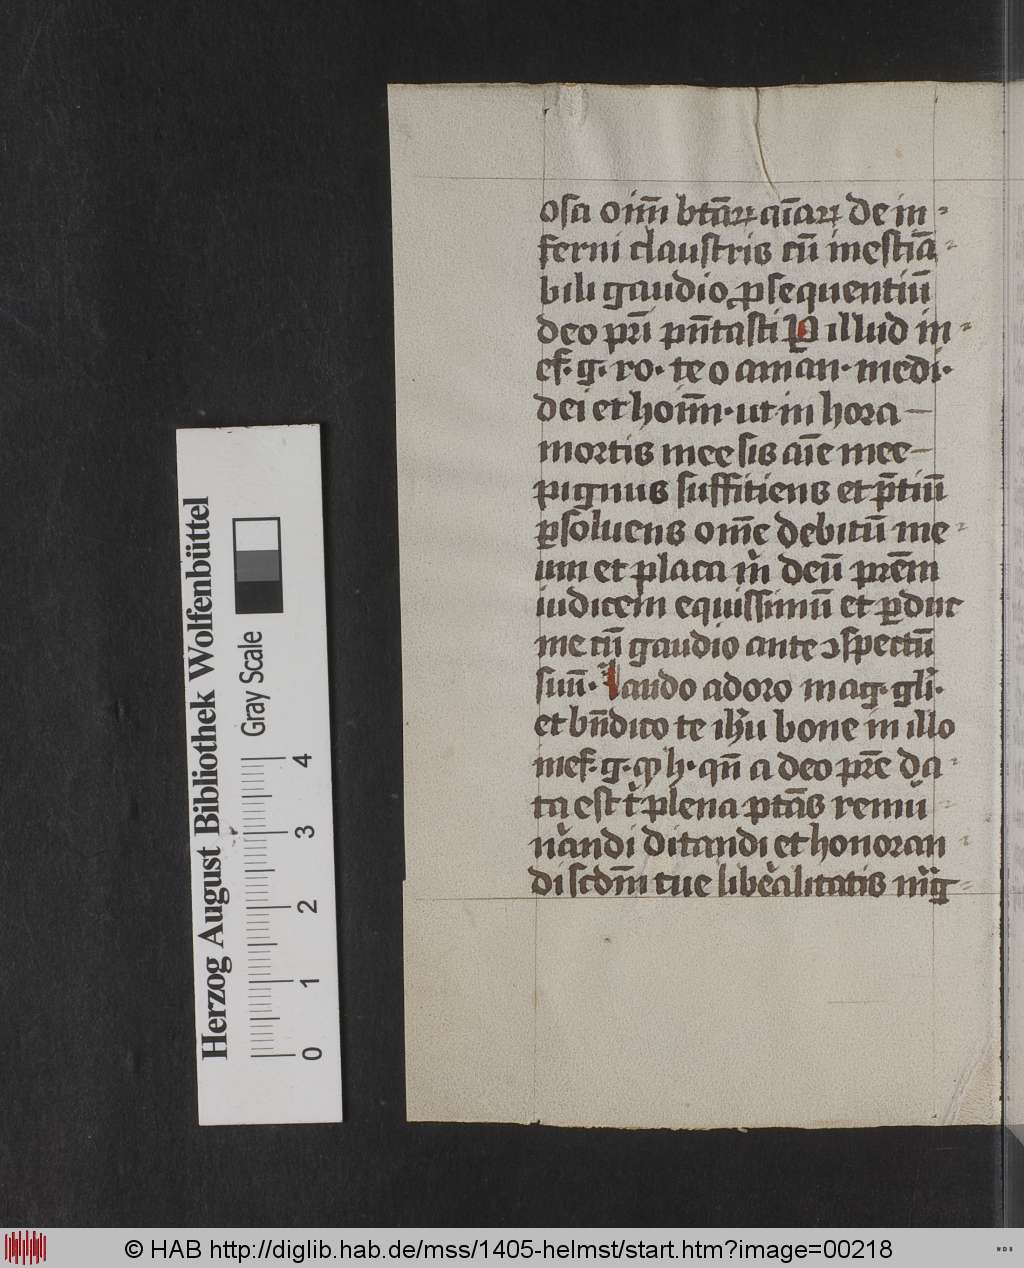 osa oīm̄ btāꝝ aīaꝝ de in⸗
ferni claustris cū inestīa⸗
bili gaudio ꝓsequentiū
deo pri pn̄tasti P illud in⸗
ef· g· ro· te o aman· medi·
dei et hoīm̄· ut in hora
mortis mee sis aīe mee
pignus suffitiens et p̄tiū
ꝑsoluens om̄e debitū me⸗
um et placa m deū prēm
iudicem equissimū et ꝑduc
me cū gaudio ante ɔspectū
suū· laudo adoro mag· gli·
et bn̄dico te ihu bone in illo
inef· g· h· qn̄ a deo pre da⸗
ta est t plena ptās remu⸗
nandi ditandi et honoran⸗
di scdm̄ tue libealitatis
Herzog August Bibliothek Wolfenbüttel
Gray Scale
0 1 2 3 4
© HAB http://diglib.hab.de/mss/1405-helmst/start.htm?image=00218